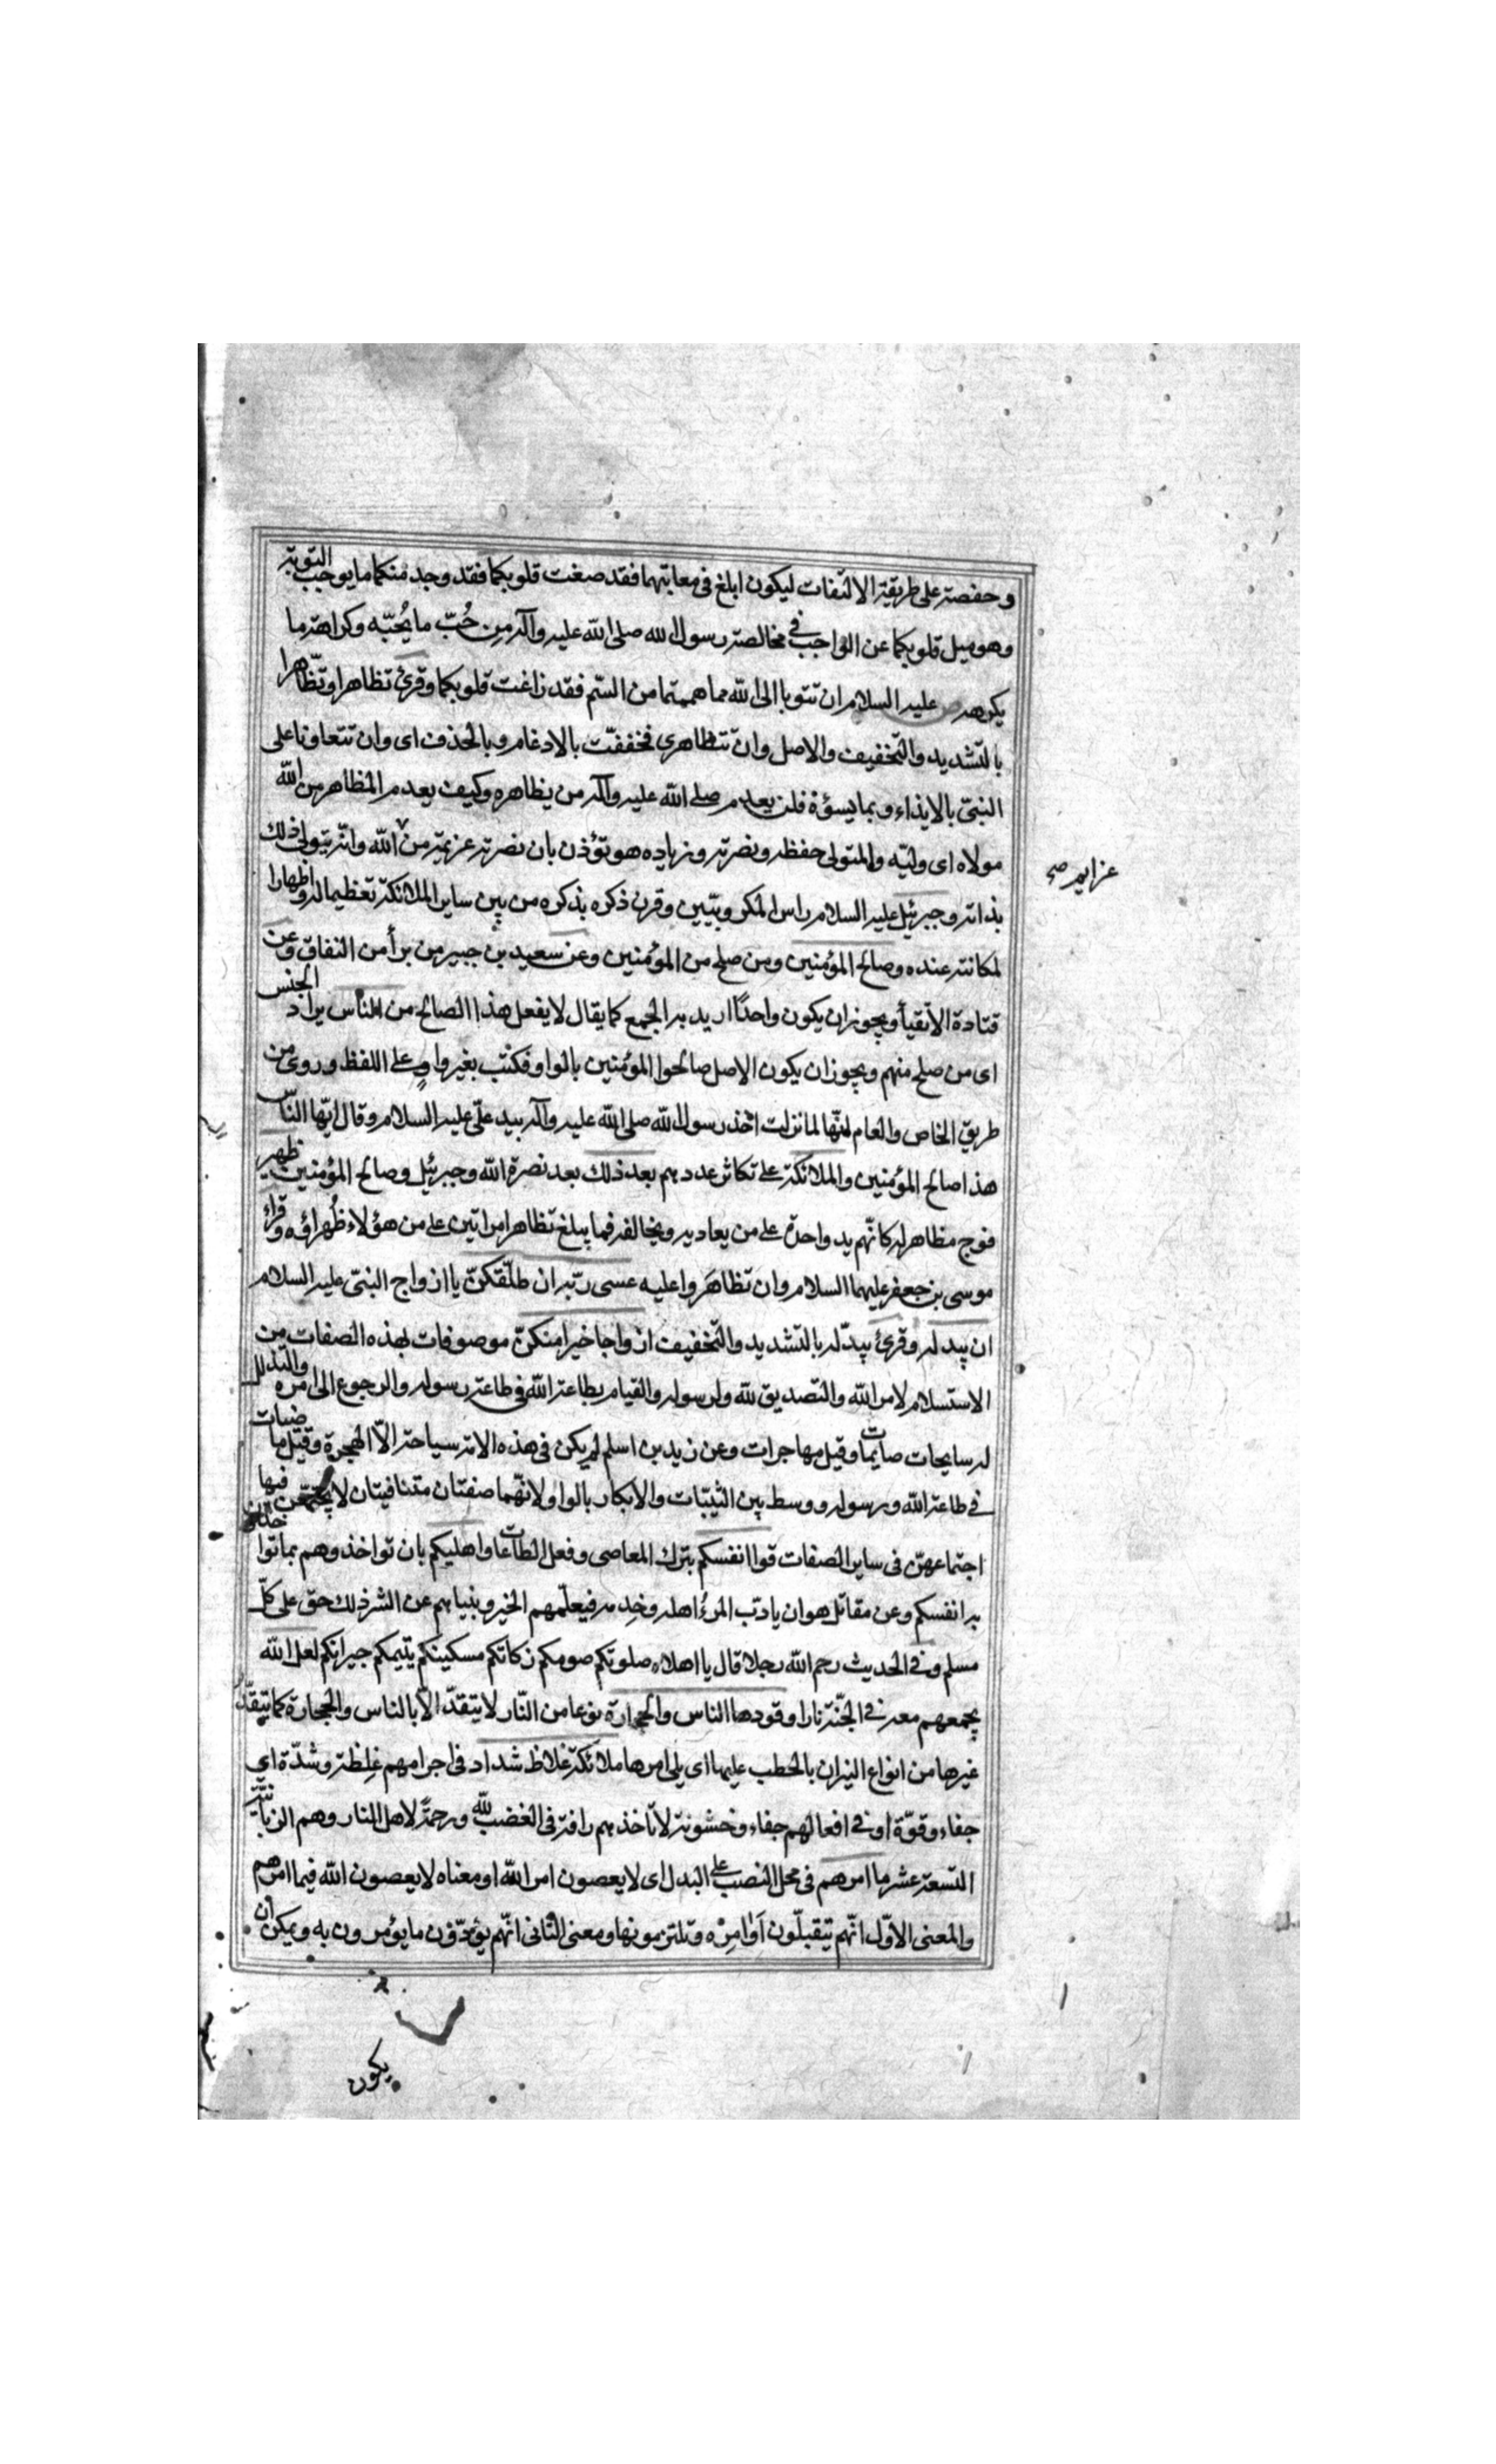 وحفصة على طريقة الالتفات ليكون ابلغ فى معاتبتهما فقد صغت قلوبكما فقد وجد منكما ما يوجب التوبة
وهو ميل قلوبكما عن الواجب فى مخالصة رسول الله صلى الله عليه وآله مِن حُبّ ما يُحبّه وكراهة ما
يكرهه عليه السلام ان تتوبا الى الله مما هممتما من السّم فقد زاغت قلوبكما وقرئ تظاهرا وتظّاهرا
بالتّشديد والتّخفيف والاصل وان تتظاهرى فخففّت بالادغام وبالحذف اى وان تتعاونا على
النبىّ بالايذاء وبما يسوؤه فلن يعدم صلى الله عليه وآله من يظاهره وكيف يعدم المظاهر من الله
مولاه اى وليّه والمتولى حفظه ونصرته وزياده هو تؤذن بان نصرته عزيمة من الله وانّه يتولى ذلك
عزايم صح
بذاته وجبرئيل عليه السلام راس الكروبيّين وقرن ذكره بذكره من بين ساير الملائكة تعظيما له واظهارا
لمكانته عنده وصالح المؤمنين ومن صلح من المؤمنين وعن سعيد بن جبير من برأ من النفاق وعن
قتادة الانقيأ ويجوز ان يكون واحدًا اريد به الجمع كما يقال لا يفعل هذا الصالح من الناس يراد الجنس
اى من صلح منهم ويجوز ان يكون الاصل صالحوا المؤمنين بالواو فكتب بغير واوٍ على اللفظ وروى من
طريق الخاص والعام انّها لما نزلت اخذ رسول الله صلى الله عليه وآله بيد علىّ عليه السلام وقال ايّها النّاس
هذا صالح المؤمنين والملائكة على تكاثر عددهم بعد ذلك بعد نصرة الله وجبرئيل وصالح المؤمنين ظهير
فوج مظاهر له كانّهم يد واحدة على من يعاديه ويخالفه فما يبلغ تظاهر امراتين على من هؤلاء ظُهراؤه وقراء
موسى بن جعفر عليهما السلام وان تظاهَروا عليه عسى ربّه ان طلّقكنّ يا ازواج النبىّ عليه السلام
ان يبدله وقرئ يبدّله بالتشديد والتّخفيف ازواجا خيرا منكنّ موصوفات بهذه الصفات من
الاستسلام لامر الله والتصديق لله ولرسوله والقيام بطاعة الله فى طاعة رسوله والرجوع الى امره والتذلل
له سايحات صايمات وقيل مهاجرات وعن زيد بن اسلم لم يكن فى هذه الامة سياحة الاّ الهجرة وقيل ماضيات
فى طاعة الله ورسوله ووسط بين الثيّبات والابكار بالواو لانّهما صفتان متنافيتان لا يجتمعن فيها
اجتماعهنّ فى ساير الصفات قوا انفسكم بترك المعاصى وفعل الطاعات واهليكم بان تواخذوهم بما تواخذون
به انفسكم وعن مقاتل هو ان يادّب المرءُ اهله وخدمه فيعلّمهم الخير وينهاهم عن الشر ذلك حق على كلّ
مسلم وفى الحديث رحم الله رجلا قال يا اهلاه صلوتكم صومكم زكاتكم مسكينكم يتيمكم جيرانكم لعل الله
يجمعهم معه فى الجنّة نارا وقودها الناس والحجارة نوعا من النّار لا يتقدّ الاّ بالناس والحجارة كما يتقّد
غيرها من انواع النيران بالحطب عليها اى يلى امرها ملائكة غلاظ شداد فى اجرامهم غِلظة وشدّة اى
جفاء وقوّة او فى افعالهم جفاء وخشونة لا تاخذهم رافة فى الغضب لله ورحمةً لاهل النار وهم الزبانيّة
التسعة عشر ما امرهم فى محل النصب على البدل اى لا يعصون امر الله او معناه لا يعصون الله فيما امرهم
والمعنى الاوّل انّهم يتقبلّون اَوامِرَه وتلتزمونها ومعنى الثانى انّهم يؤدّون ما يؤمرون به ويمكن ان
يكون